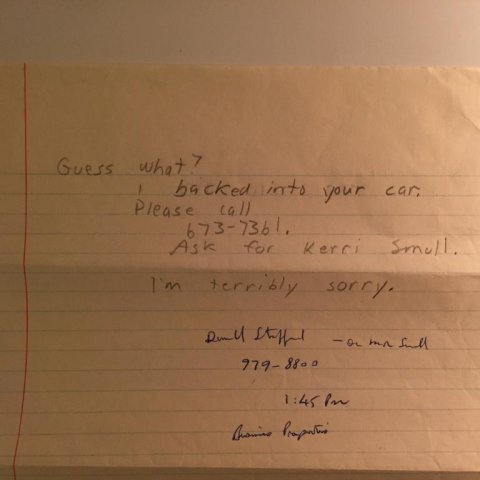 Guess what?
I backed into your car.
Please call
673-7361.
Ask for Kerri Smull.
I'm terribly sorry.
979-8800
1:45 PM
Business Properties